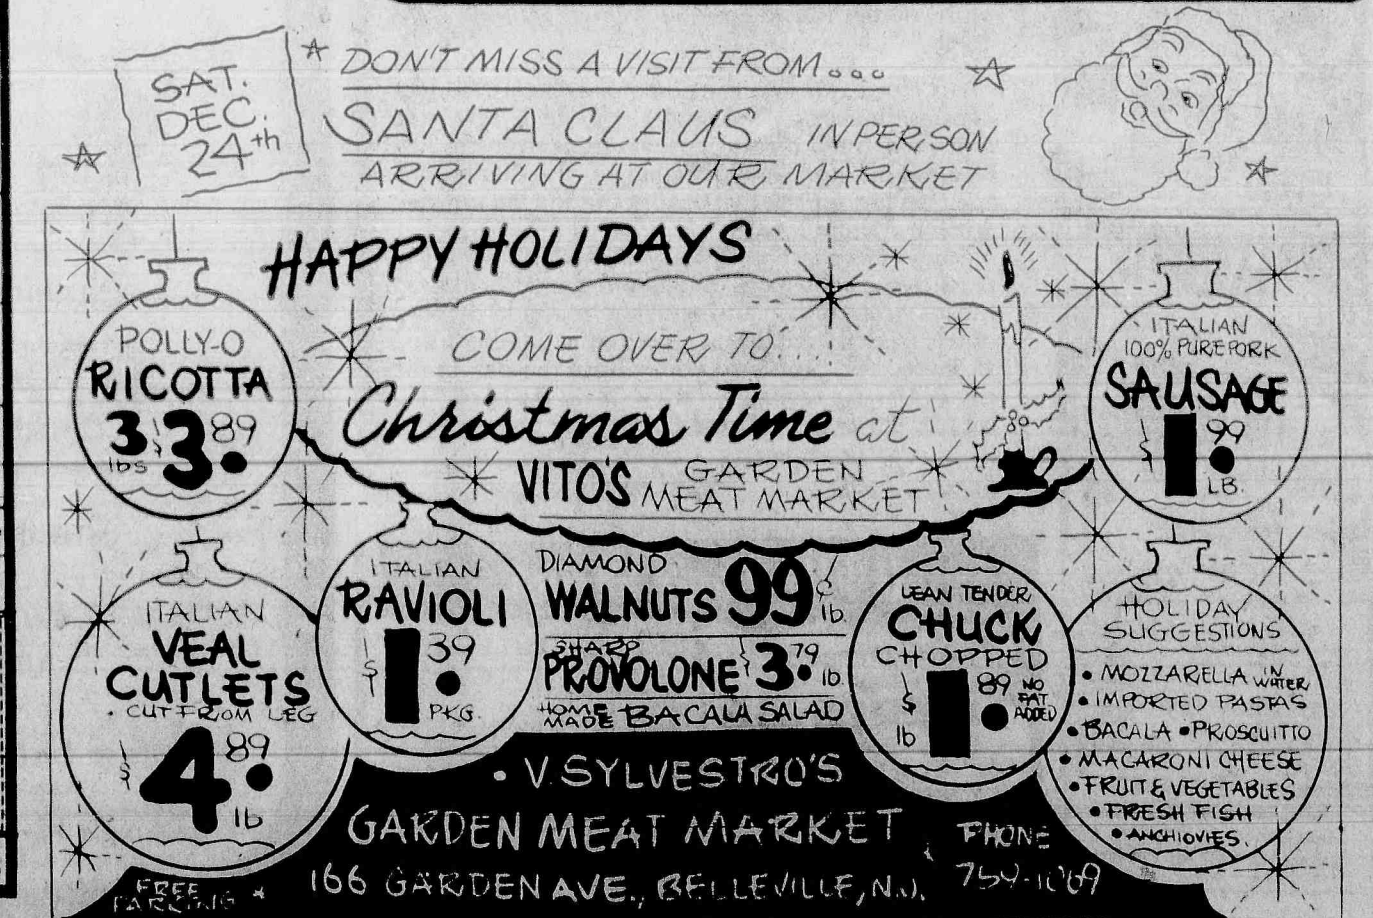 SAT.
DEC.
24th
DON'T MISS A VISIT FROM...
SANTA CLAUS IN PERSON
ARRIVING AT OUR MARKET
HAPPY HOLIDAYS
COME OVER TO...
Christmas Time at
VITO'S GARDEN
MEAT MARKET
POLLY-O
RICOTTA
3 lbs $3.89
ITALIAN
100% PURE PORK
SAUSAGE
$1.99
LB.
ITALIAN
VEAL
CUTLETS
CUT FROM LEG
$4.89
lb
ITALIAN
RAVIOLI
$1.39
PKG.
DIAMOND
WALNUTS 99¢ lb.
SHARP
PROVOLONE $3.79 lb
HOME MADE BACALA SALAD
LEAN TENDER
CHUCK
CHOPPED
$1.89 lb
NO FAT ADDED
HOLIDAY
SUGGESTIONS
• MOZZARELLA IN WATER
• IMPORTED PASTAS
• BACALA • PROSCUITTO
• MACARONI CHEESE
• FRUIT & VEGETABLES
• FRESH FISH
• ANCHIOVIES.
• V. SYLVESTRO'S
GARDEN MEAT MARKET
166 GARDEN AVE., BELLEVILLE, N.J.
PHONE
FREE
PARKING